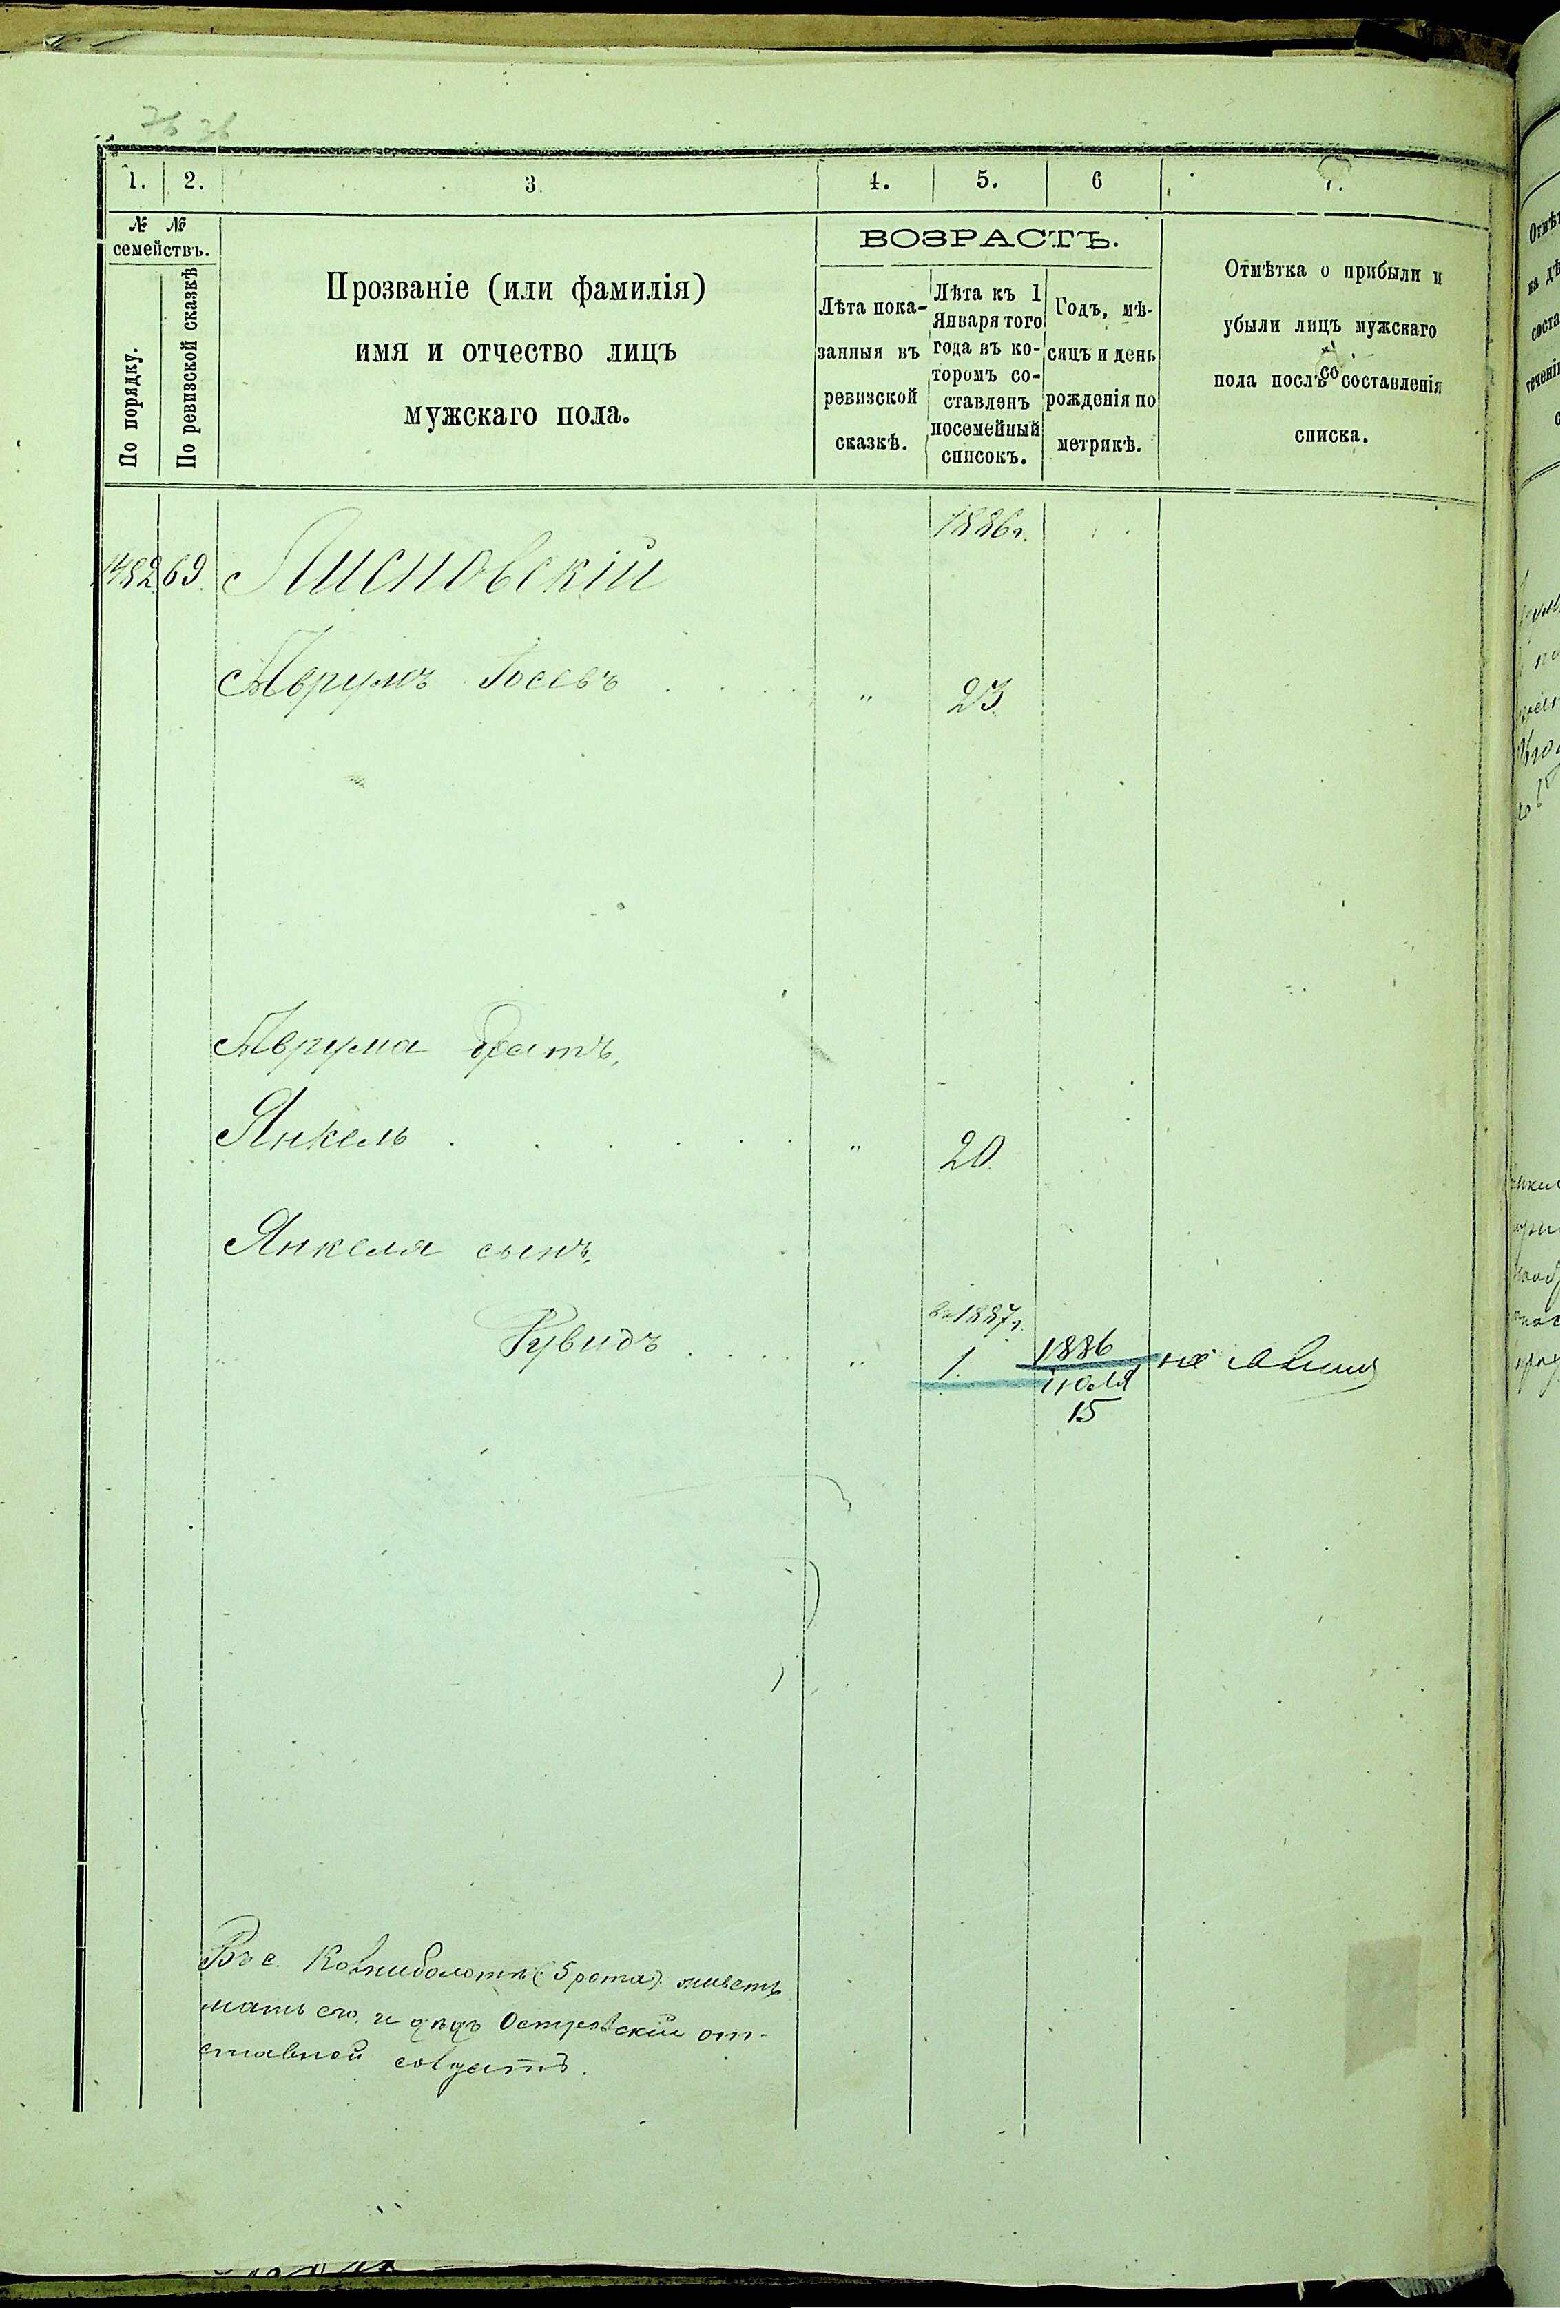 1. 2. 3 4. 5. 6 7.
№ №
семействъ.
По порядку.
По ревизской сказкѣ
Прозваніе (или фамилія)
имя и отчество лицъ
мужскаго пола.
ВОЗРАСТЪ.
Лѣта пока-
занныя въ
ревизской
сказкѣ.
Лѣта къ 1
Января того
года въ ко-
торомъ со-
ставленъ
посемейный
списокъ.
Годъ, мѣ-
сяцъ и день
рожденія по
метрикѣ.
Отмѣтка о прибыли и
убыли лицъ мужскаго
пола послѣ составленія
списка.
1886г.
69. Лисновскій
Аврумъ Іосевъ . . . . " 23
Аврума братъ,
Янкель . . . . . " 20.
Янкеля сынъ,
въ 1887г.
Рувидъ . . . . " 1. 1886
іюля
15
Въ с. (5 рота) живетъ
мать его и дѣдъ Островскій от-
ставной солдатъ.